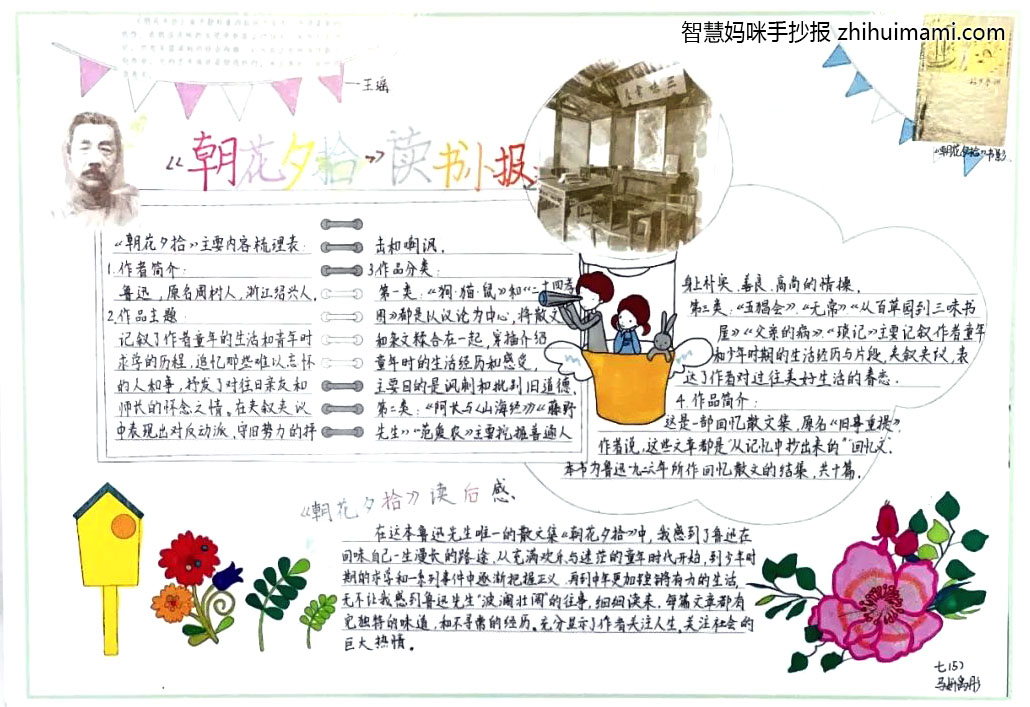 智慧妈咪手抄报 zhihuimami.com
—王瑶
《朝花夕拾》读书小报
《朝花夕拾》书影
三味书屋
《朝花夕拾》主要内容梳理表:
1.作者简介:
鲁迅,原名周树人,浙江绍兴人。
2.作品主题:
记叙了作者童年的生活和青年时
求学的历程,追忆那些难以忘怀
的人和事,抒发了对往日亲友和
师长的怀念之情。在夹叙夹议
中表现出对反动派,守旧势力的抨
击和嘲讽。
3.作品分类:
第一类:《狗·猫·鼠》和《二十四孝
图》都是以议论为中心,将散文
和杂文糅合在一起,穿插介绍
童年时的生活经历和感受,
主要目的是讽刺和批判旧道德。
第二类:《阿长与《山海经》》《藤野
先生》《范爱农》主要挖掘普通人
身上朴实、善良、高尚的情操。
第三类:《五猖会》《无常》《从百草园到三味书
屋》《父亲的病》《琐记》主要记叙作者童年
和少年时期的生活经历与片段,夹叙夹议,表
达了作者对过往美好生活的眷恋。
4.作品简介:
这是一部回忆散文集,原名《旧事重提》,
作者说,这些文章都是"从记忆中抄出来的""回忆文"。
本书为鲁迅一九二六年所作回忆散文的结集,共十篇。
《朝花夕拾》读后感
在这本鲁迅先生唯一的散文集《朝花夕拾》中,我感到了鲁迅在
回味自己一生漫长的路途,从充满欢乐与迷茫的童年时代开始,到少年时
期的求学和一系列事件中逐渐把握正义,再到中年更加铿锵有力的生活,
无不让我感到鲁迅先生"波澜壮阔"的往事,细细读来,每篇文章都有
它独特的味道,和不寻常的经历。充分显示了作者关注人生、关注社会的
巨大热情。
七(5)